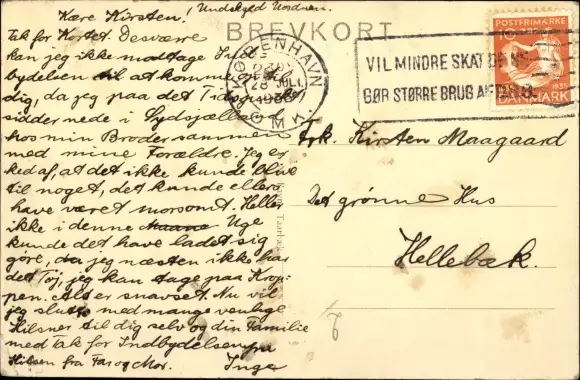 Kære Kirsten.
(Undskyld Unoden.
BREVKORT
Tak for Kortet. Desværre
kan jeg ikke modtage Ind-
bydelsen til at komme
dig, da jeg paa det Tidspunkt
sidder nede i Sydsjælland
hos min Broder sammen
med mine Forældre. Jeg er
ked af, at det ikke kunde blive
til noget, det kunde ellers
have været morsomt. Heller
ikke i denne Uge
kunde det have ladet sig
göre, da jeg næsten ikke har
det Töj, jeg kan tage paa Krop-
pen. Alt er snavset. Nu vil
jeg slutte med mange venlige
Hilsner til dig selv og din Familie
med tak for Indbydelsen fra
Hilsen fra Far og Mor. Inge
KØBENHAVN
OMK.
VIL MINDRE SKAT DE
GØR STØRRE BRUG AF
POSTFRIMÆRKE
10
1935
DANMARK
Frk. Kirsten Maagaard
Det grønne Hus
Hellebæk.